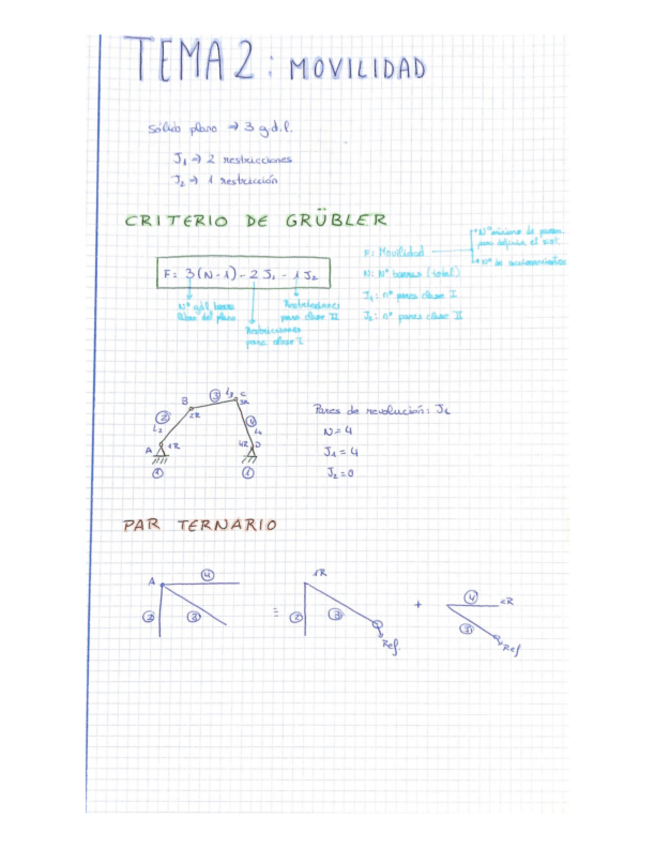 TEMA 2: MOVILIDAD
Sólido plano → 3 g.d.l.
J₁ → 2 restricciones
J₂ → 1 restricción
CRITERIO DE GRÜBLER
F: 3(N-1) - 2J₁ - 1J₂
Nº gdl barra
libre del plano
Restricciones
para clase I
Restricciones
para clase II
F: Movilidad
Nº mínimo de param.
para definir el
Nº de accionamientos
N: Nº barras (total)
J₁: nº pares clase I
J₂: nº pares clase II
B ③ L₃ C
② 2R 3R
L₂ ④ L₄
A 1R 4R D
① ①
Pares de revolución:
N=4
J₁=4
J₂=0
PAR TERNARIO
A ④ ② ③
≡
1R ② ③ Ref.
+
④ 2R ③ Ref